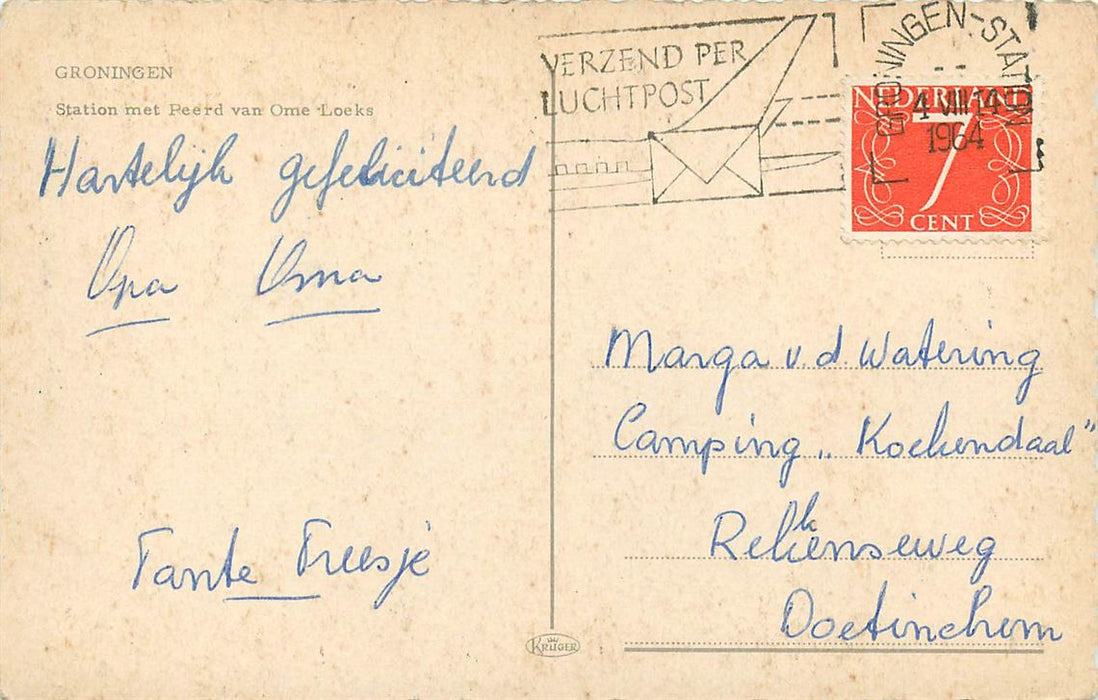 GRONINGEN
Station met Peerd van Ome Loeks
Hartelijk gefeliciteerd
Opa Oma
Tante Treesje
VERZEND PER
LUCHTPOST
GRONINGEN-STATION
4 VIII 14
1964
NEDERLAND
7
CENT
Marga v.d. Watering
Camping „Koekendaal”
Rekkenseweg
Doetinchem
KRÜGER